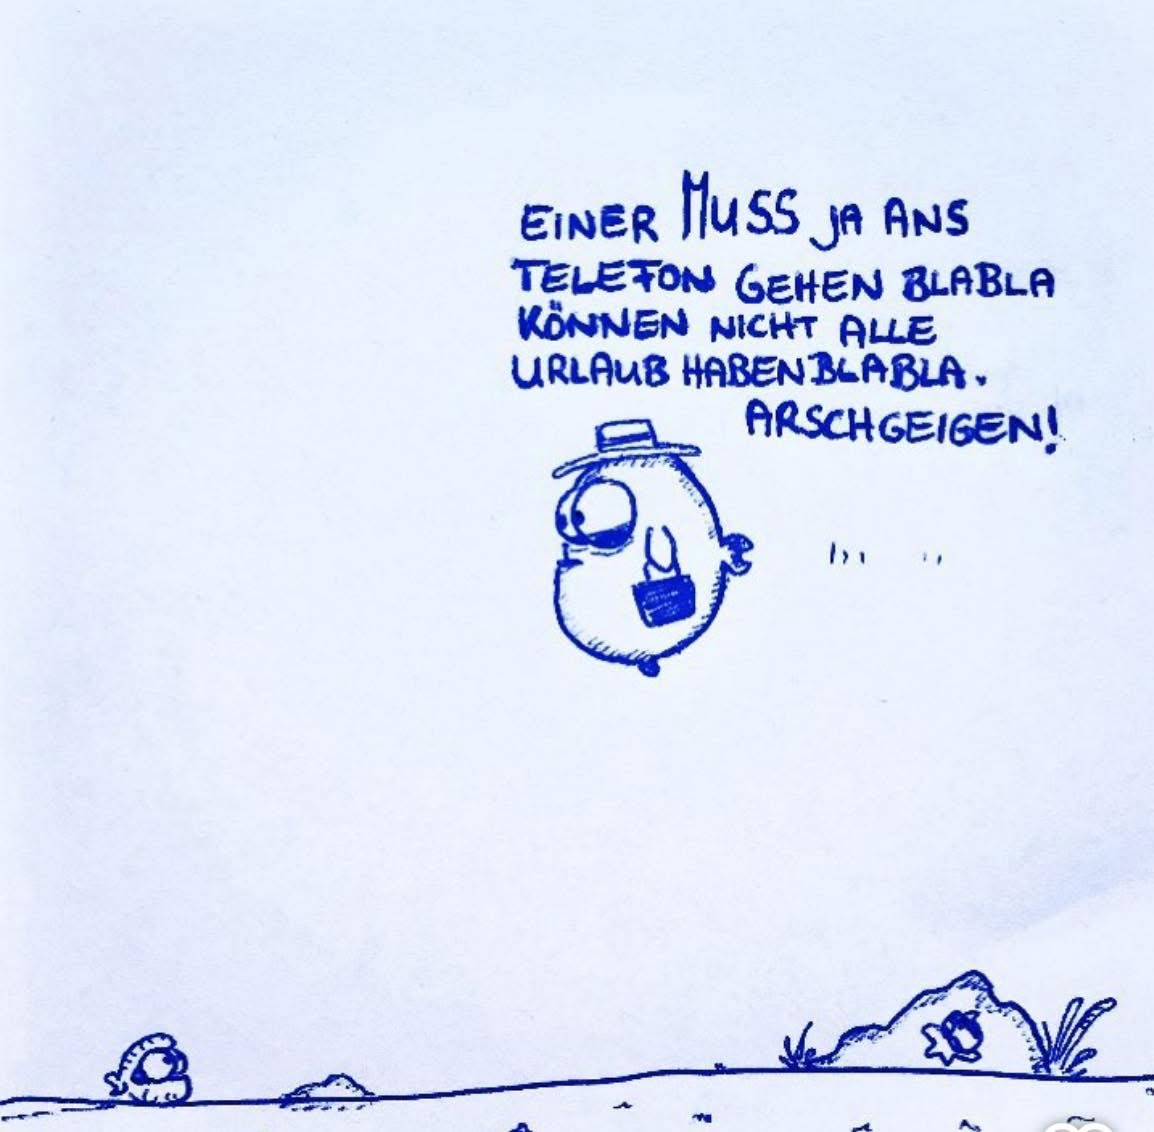 EINER MUSS JA ANS
TELEFON GEHEN BLABLA
KÖNNEN NICHT ALLE
URLAUB HABEN BLABLA.
ARSCHGEIGEN!